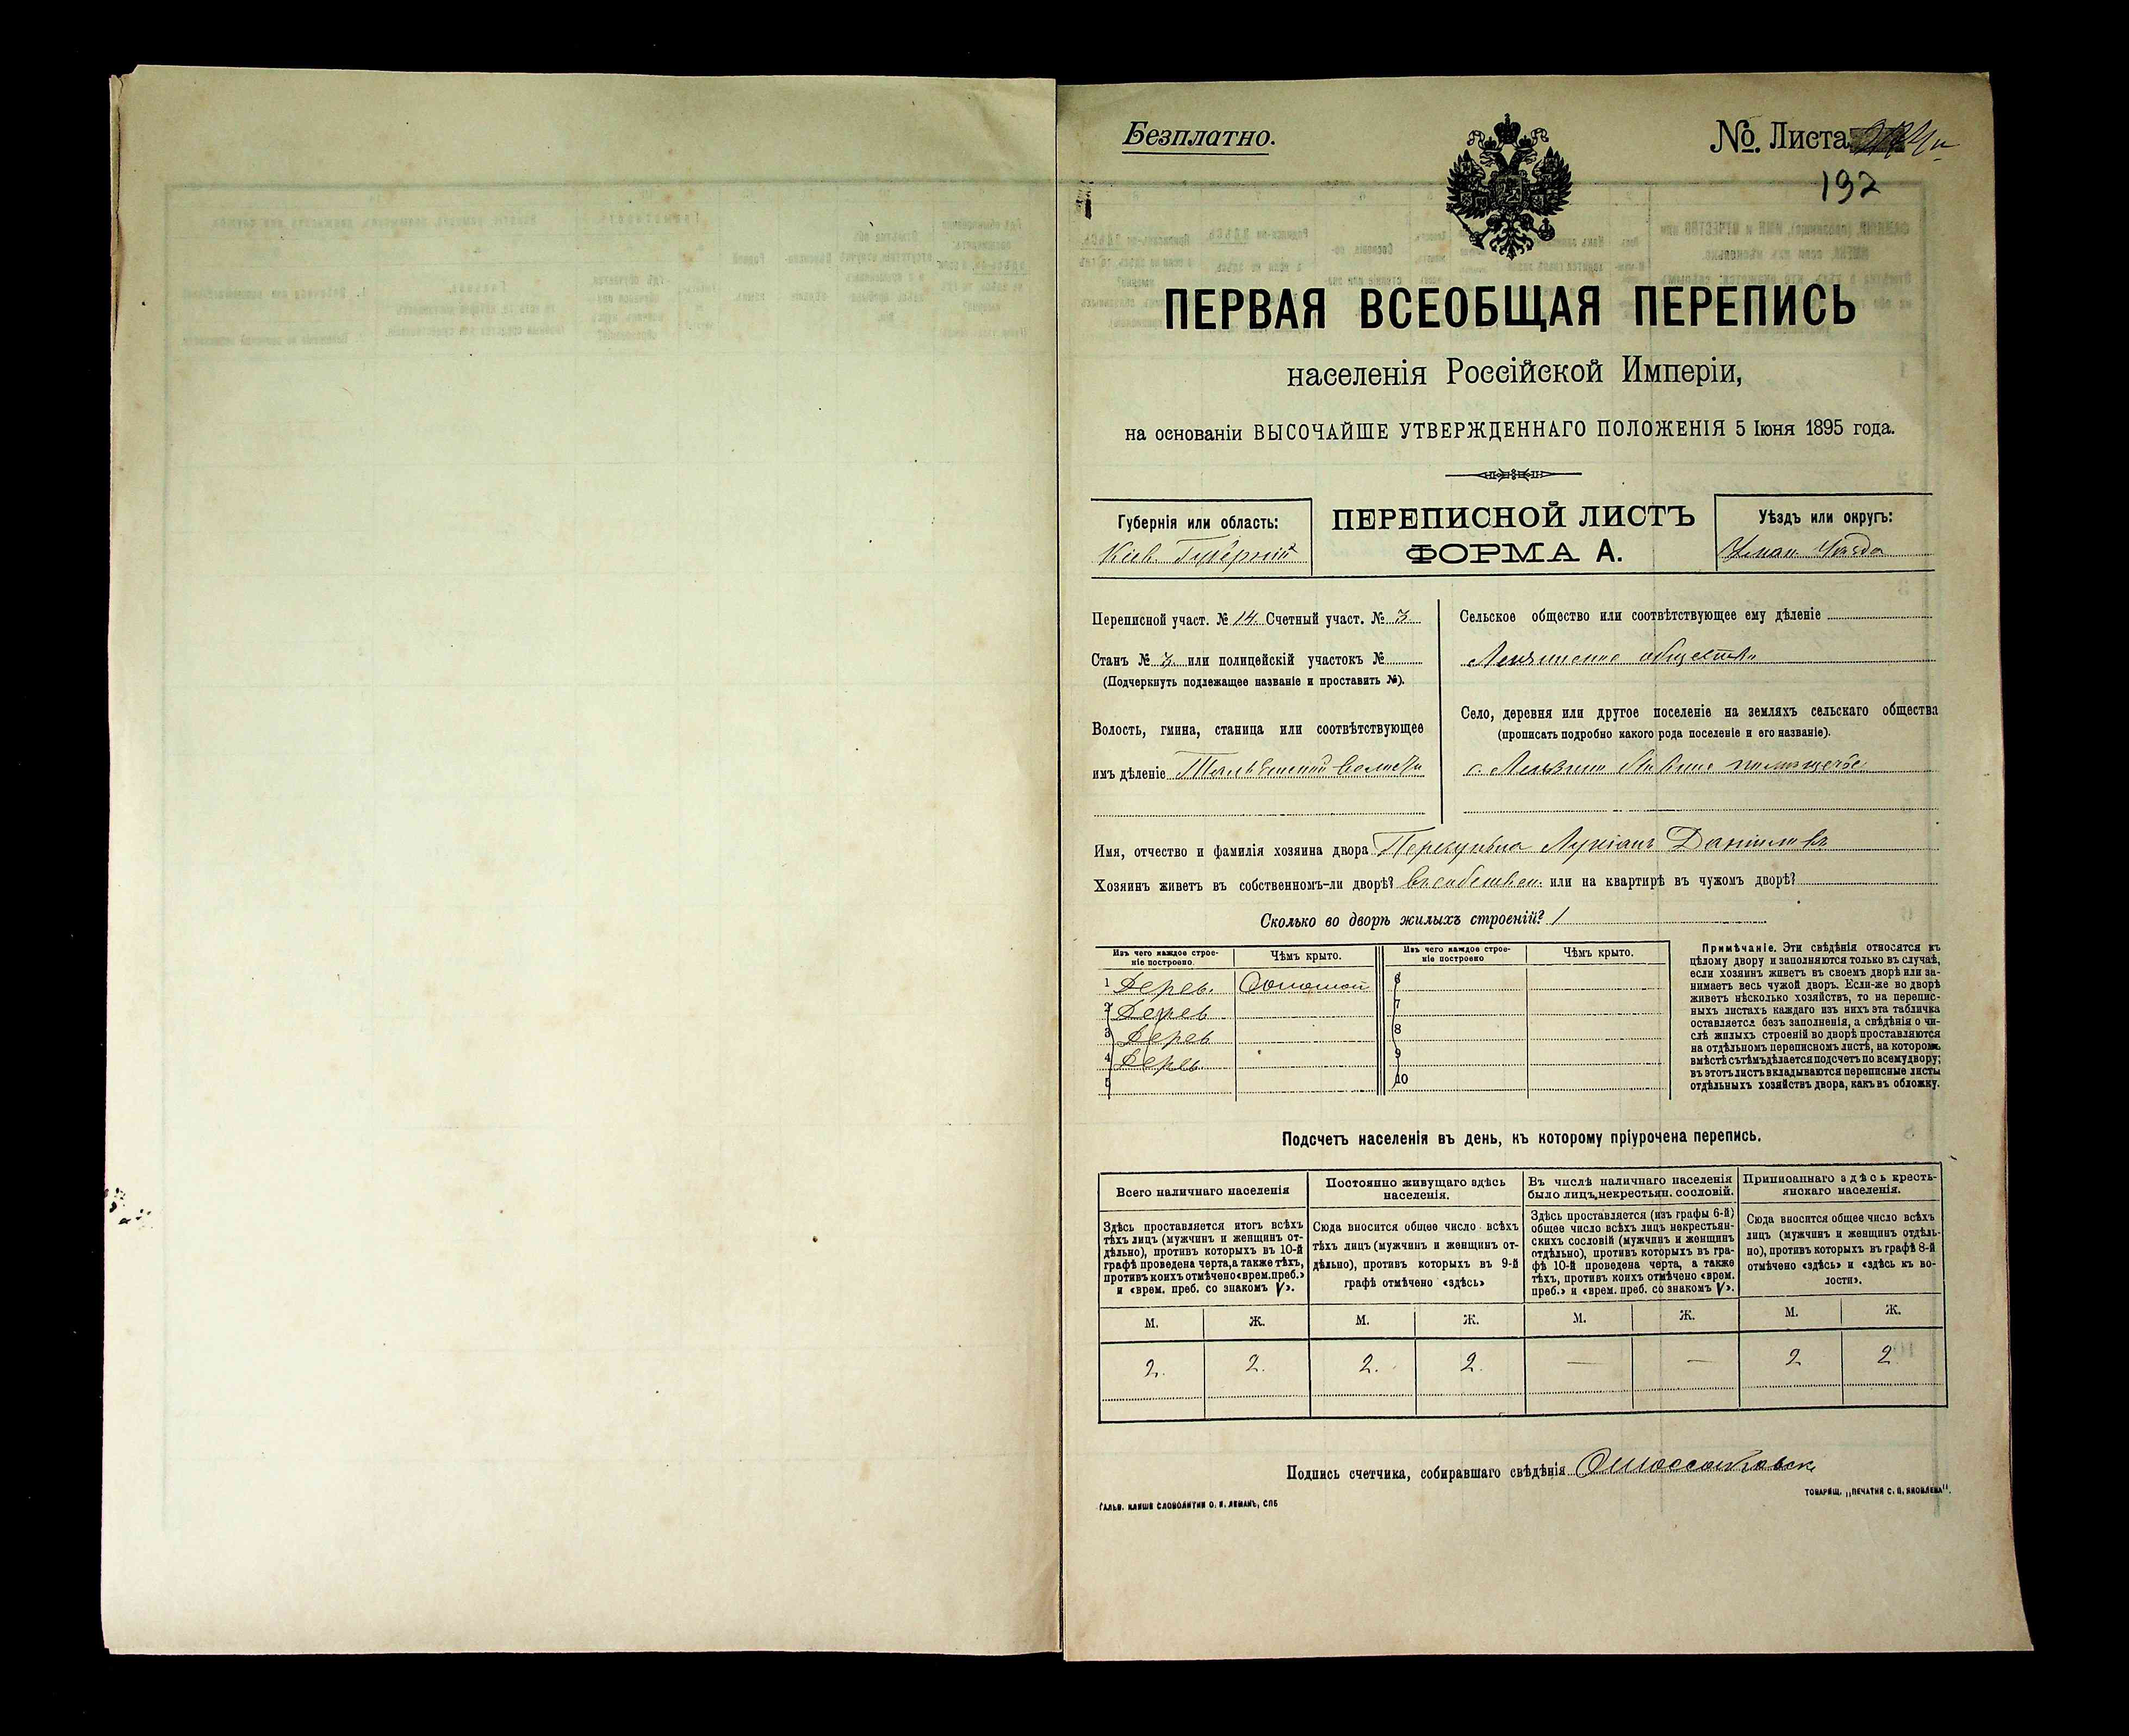 Безплатно.
№. Листа
192
ПЕРВАЯ ВСЕОБЩАЯ ПЕРЕПИСЬ
населенія Россійской Имперіи,
на основаніи ВЫСОЧАЙШЕ УТВЕРЖДЕННАГО ПОЛОЖЕНІЯ 5 Іюня 1895 года.
Губернія или область:
Кіев. Губерніи
ПЕРЕПИСНОЙ ЛИСТЪ
ФОРМА А.
Уѣздъ или округъ:
Уман. Уѣзда
Переписной участ. № 14. Счетный участ. № 3
Станъ № 3 или полицейскій участокъ №
(Подчеркнуть подлежащее названіе и проставить №).
Волость, гмина, станица или соотвѣтствующее
имъ дѣленіе
Сельское общество или соотвѣтствующее ему дѣленіе
общества
Село, деревня или другое поселеніе на земляхъ сельскаго общества
(прописать подробно какого рода поселеніе и его названіе).
с.
Имя, отчество и фамилія хозяина двора Лукіанъ Даниловъ
Хозяинъ живетъ въ собственномъ-ли дворѣ? въ собствен. или на квартирѣ въ чужомъ дворѣ?
Сколько во дворѣ жилыхъ строеній? 1
Изъ чего каждое строе-
ніе построено.
Чѣмъ крыто.
Изъ чего каждое строе-
ніе построено
Чѣмъ крыто.
1 Дерев. Соломой 6
2 Дерев 7
3 Дерев 8
4 Дерев 9
5 10
Примѣчаніе. Эти свѣдѣнія относятся къ
цѣлому двору и заполняются только въ случаѣ,
если хозяинъ живетъ въ своемъ дворѣ или за-
нимаетъ весь чужой дворъ. Если-же во дворѣ
живетъ нѣсколько хозяйствъ, то на перепис-
ныхъ листахъ каждаго изъ нихъ эта табличка
оставляется безъ заполненія, а свѣдѣнія о чи-
слѣ жилыхъ строеній во дворѣ проставляются
на отдѣльномъ переписномъ листѣ, на которомъ
вмѣстѣ съ тѣмъ дѣлается подсчетъ по всему двору;
въ этотъ листъ вкладываются переписные листы
отдѣльныхъ хозяйствъ двора, какъ въ обложку.
Подсчетъ населенія въ день, къ которому пріурочена перепись.
Всего наличнаго населенія
Здѣсь проставляется итогъ всѣхъ
тѣхъ лицъ (мужчинъ и женщинъ от-
дѣльно), противъ которыхъ въ 10-й
графѣ проведена черта, а также тѣхъ,
противъ коихъ отмѣчено «врем. преб.»
и «врем. преб. со знакомъ V».
Постоянно живущаго здѣсь
населенія.
Сюда вносится общее число всѣхъ
тѣхъ лицъ (мужчинъ и женщинъ от-
дѣльно), противъ которыхъ въ 9-й
графѣ отмѣчено «здѣсь»
Въ числѣ наличнаго населенія
было лицъ, некрестьян. сословій.
Здѣсь проставляется (изъ графы 6-й)
общее число всѣхъ лицъ некрестьян-
скихъ сословій (мужчинъ и женщинъ
отдѣльно), противъ которыхъ въ гра-
фѣ 10-й проведена черта, а также
тѣхъ, противъ коихъ отмѣчено «врем.
преб.» и «врем. преб. со знакомъ V».
Приписаннаго здѣсь кресть-
янскаго населенія.
Сюда вносится общее число всѣхъ
лицъ (мужчинъ и женщинъ отдѣль-
но), противъ которыхъ въ графѣ 8-й
отмѣчено «здѣсь» и «здѣсь къ во-
лости».
М. Ж. М. Ж. М. Ж. М. Ж.
2. 2. 2. 2. — — 2 2
Подпись счетчика, собиравшаго свѣдѣнія
ГАЛЬВ. КЛИШЕ СЛОВОЛИТНИ О. И. ЛЕМАНЪ, СПБ
ТОВАРИЩ. „ПЕЧАТНЯ С. П. ЯКОВЛЕВА".